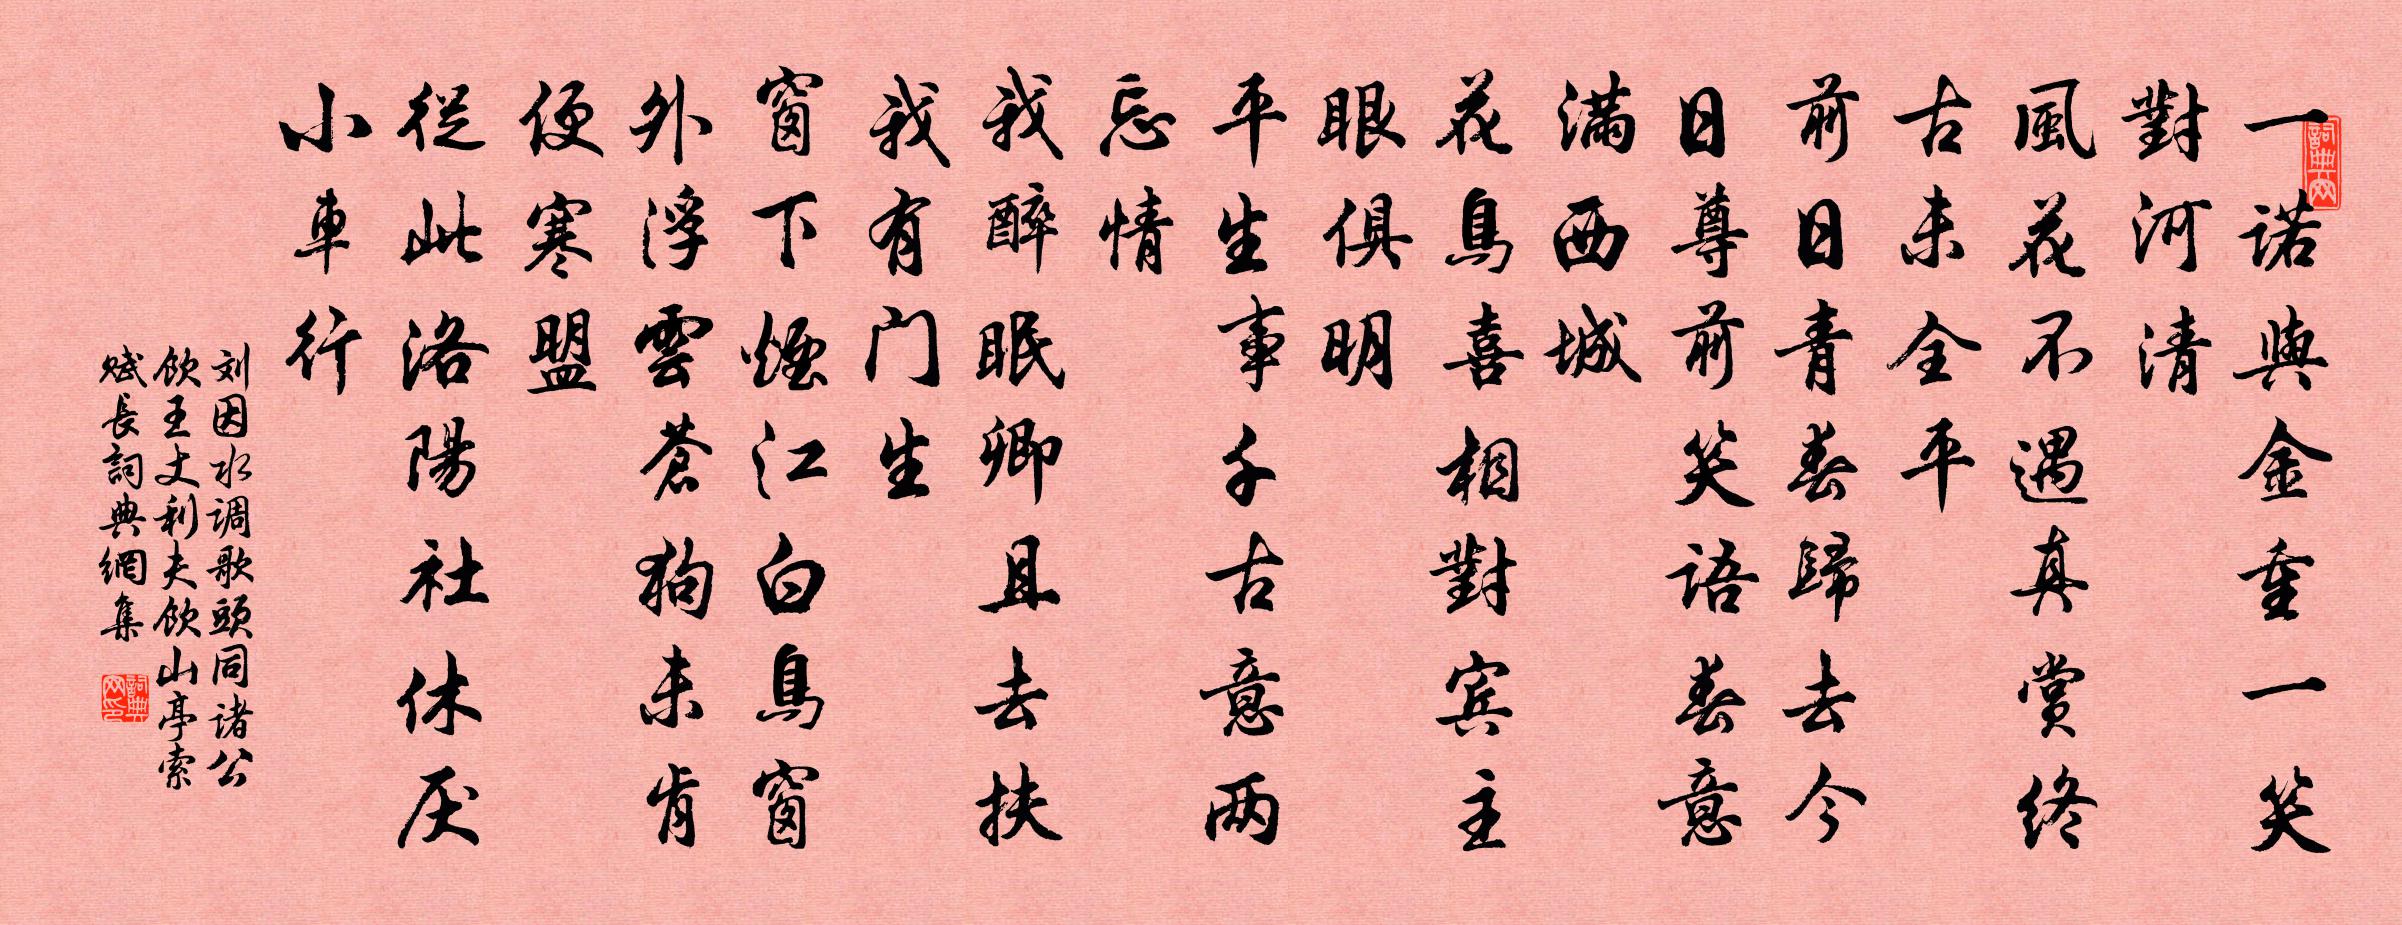 一诺與金重一笑
對河清
風花不遇真赏终
古未全平
前日青春歸去今
日尊前笑语春意
满西城
花鳥喜相對宾主
眼俱明
平生事千古意两
忘情
我醉眠卿且去扶
我有门生
窗下煙江白鳥窗
外浮雲蒼狗未肯
便寒盟
從此洛陽社休厌
小車行
刘因水调歌頭同诸公
飲王丈利夫飲山亭索
赋長詞典網集
詞典网
詞典网印